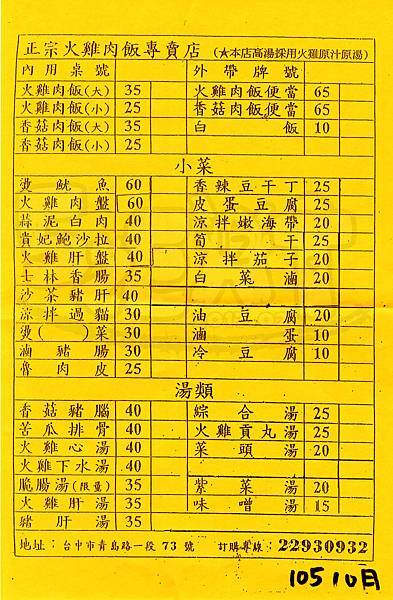 正宗火雞肉飯專賣店 (★本店高湯採用火雞原汁原湯)
內用桌號 外帶牌號
火雞肉飯(大) 35 火雞肉飯便當 65
火雞肉飯(小) 25 香菇肉飯便當 65
香菇肉飯(大) 35 白飯 10
香菇肉飯(小) 25
小菜
燙魷魚 60 香辣豆干丁 25
火雞肉盤 60 皮蛋豆腐 25
蒜泥白肉 40 涼拌嫩海帶 20
貴妃鮑沙拉 40 筍干 25
火雞肝盤 40 涼拌茄子 20
士林香腸 35 白菜滷 20
沙茶豬肝 40
涼拌過貓 30 油豆腐 20
燙( )菜 30 滷蛋 10
滷豬腸 30 冷豆腐 10
魯肉皮 25
湯類
香菇豬腦 40 綜合湯 25
苦瓜排骨 40 火雞貢丸湯 25
火雞心湯 40 菜頭湯 20
火雞下水湯 40
脆腸湯(限量) 35 紫菜湯 20
火雞肝湯 35 味噌湯 15
豬肝湯 35
地址：台中市青島路一段73號 訂購專線：22930932
105 10月